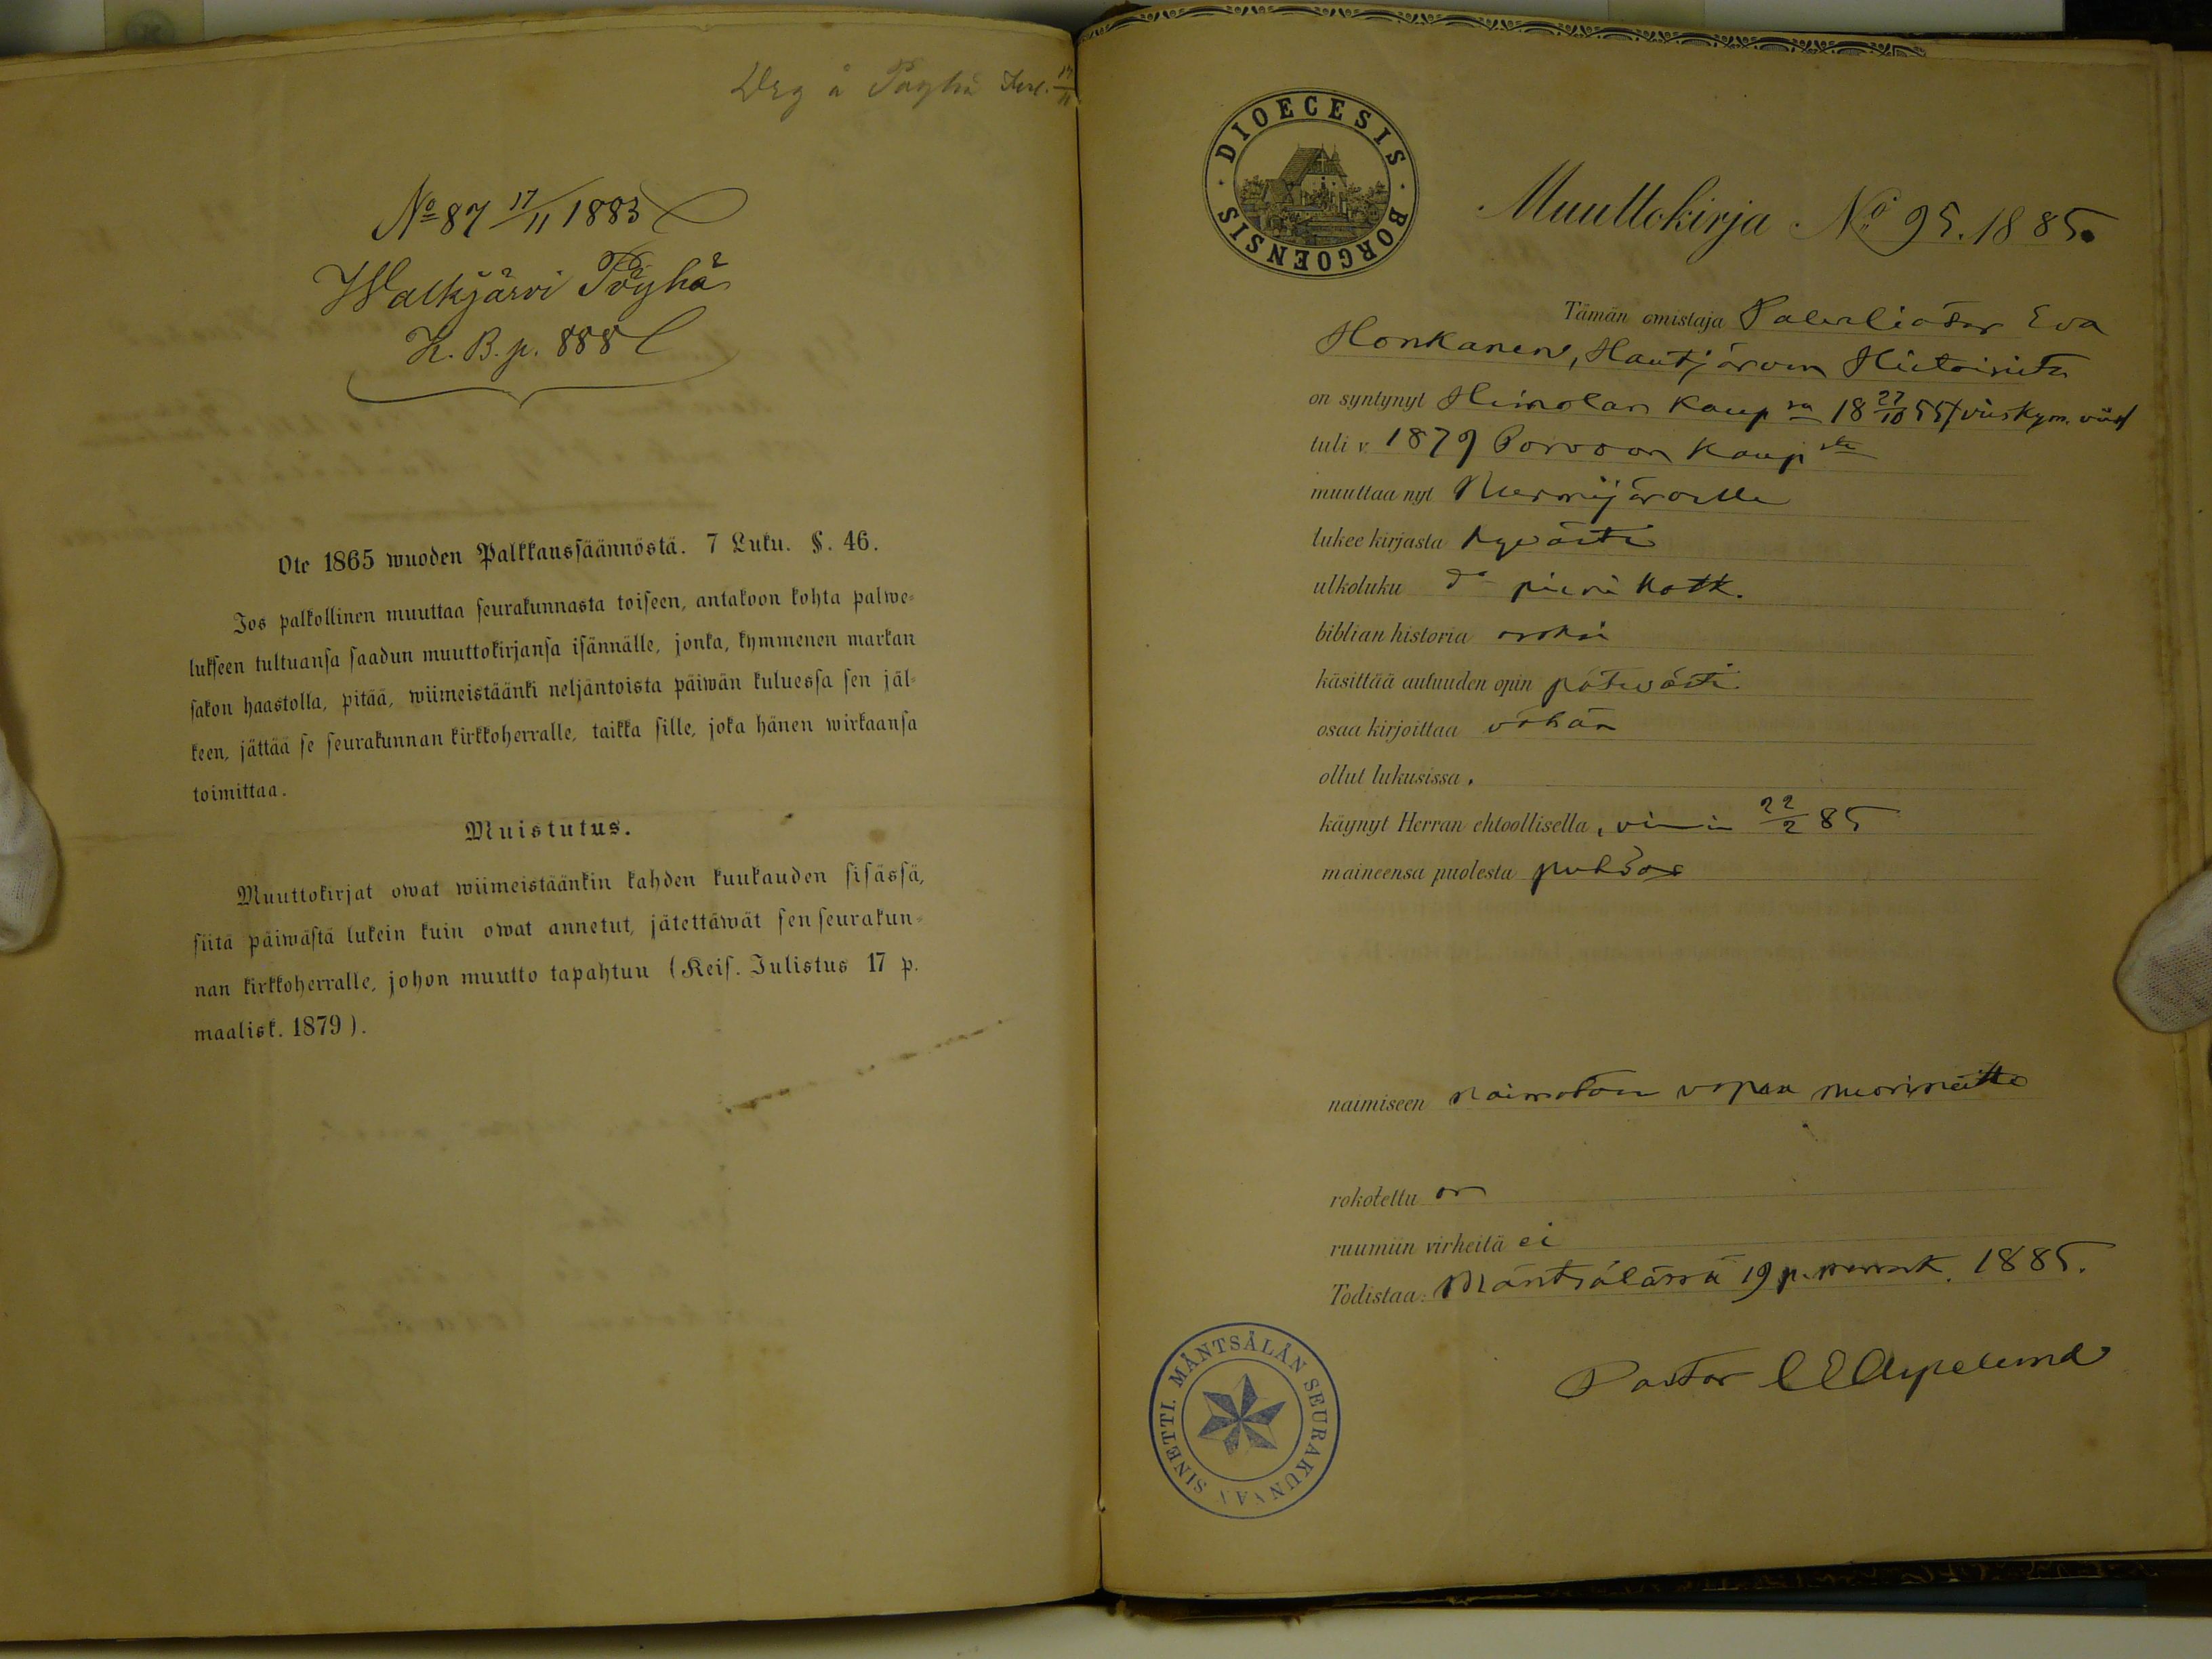 Drg å Pöyhä
17/11
No 87 17/11 1883
Walkjärvi Pöyhä
K. B. p. 888
Ote 1865 wuoden Palkkaussäännöstä. 7 Luku. §. 46.
Jos palkollinen muuttaa seurakunnasta toiseen, antakoon kohta palwe-
lukseen tultuansa saadun muuttokirjansa isännälle, jonka, kymmenen markan
sakon haastolla, pitää, wiimeistäänki neljäntoista päiwän kuluessa sen jäl-
keen, jättää se seurakunnan kirkkoherralle, taikka sille, joka hänen wirkaansa
toimittaa.
Muistutus.
Muuttokirjat owat wiimeistäänkin kahden kuukauden sisässä,
siitä päiwästä lukein kuin owat annetut, jätettäwät sen seurakun-
nan kirkkoherralle, johon muutto tapahtuu (Keis. Julistus 17 p.
maalisk. 1879).
DIOECESIS BORGOENSIS
Muuttokirja No 95. 1885.
Tämän omistaja Palveliatar Eva
Honkanen, Hautjärven
on syntynyt Heinolan kaup sa 18 27/10 55
tuli v. 1879 Porvoon kaup sta
muuttaa nyt Nurmijärvelle
lukee kirjasta hyvästi
ulkoluku do pieni katk.
biblian historia
käsittää autuuden opin pätevästi
osaa kirjoittaa vähän
ollut lukusissa.
käynyt Herran ehtoollisella, viim 22/2 85
maineensa puolesta puhdas
naimiseen naimaton vapaa
rokotettu on
ruumiin virheitä ei
Todistaa: Mäntsälässä 19 p. 1885.
Pastor
MÄNTSÄLÄN SEURAKUNNAN SINETTI.